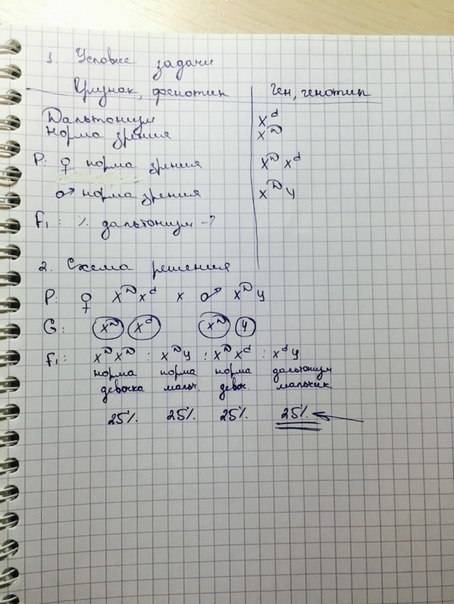 1. Условие задачи
Признак, фенотип Ген, генотип
Дальтонизм X^d
Норма зрения X^D
P: ♀ норма зрения X^D X^d
♂ норма зрения X^D Y
F₁: % дальтонизм - ?
2. Схема решения
P: ♀ X^D X^d x ♂ X^D Y
G: X^D X^d X^D Y
F₁: X^D X^D : X^D Y : X^D X^d : X^d Y
норма норма норма дальтонизм
девочка мальч. девоч. мальчик
25% 25% 25% 25%